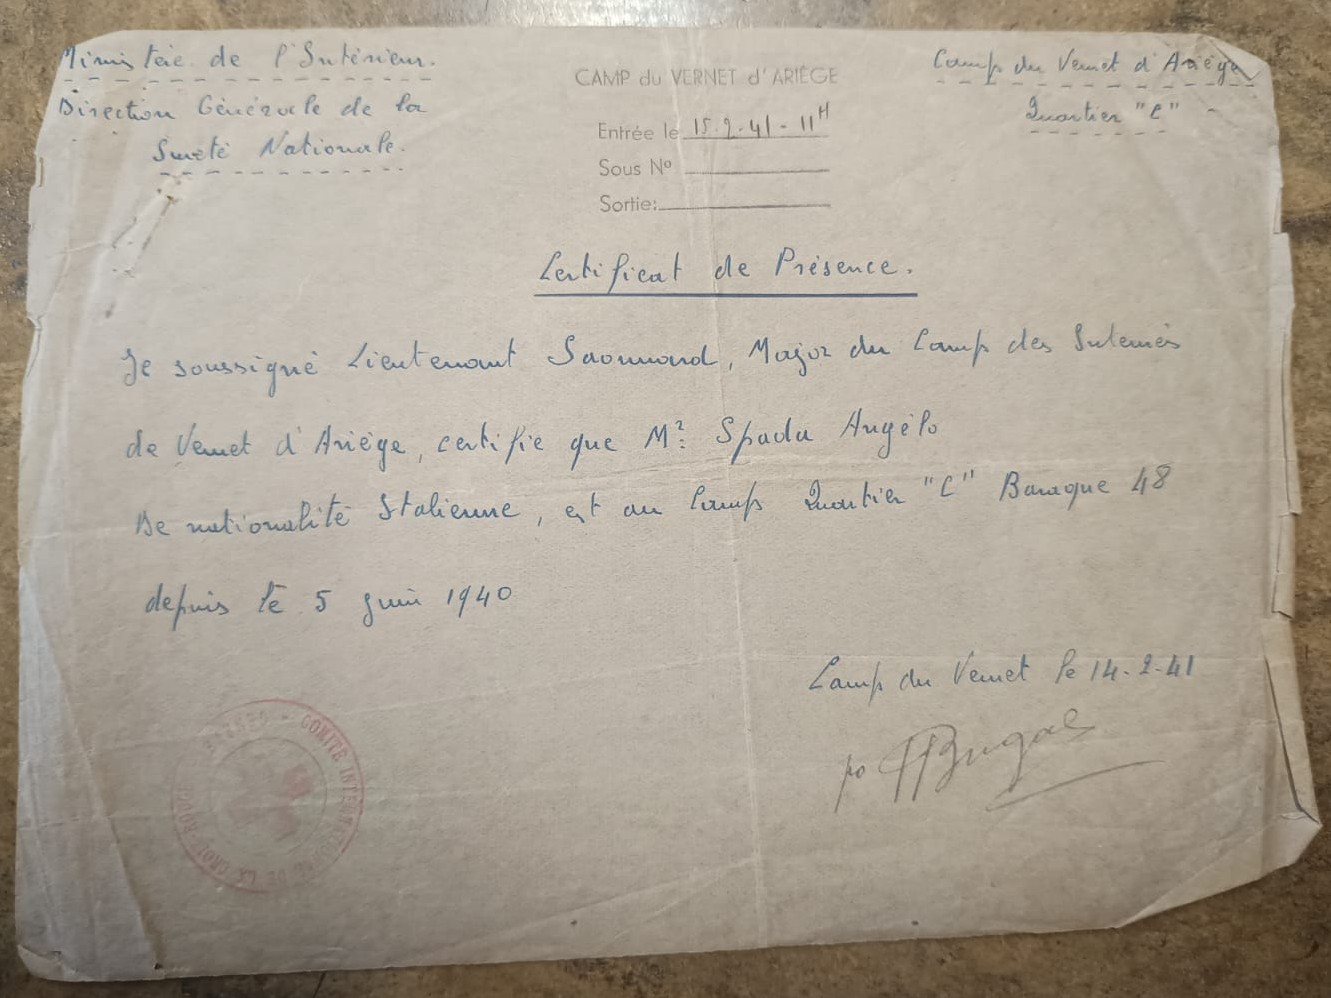 Ministère de l'Intérieur.
Direction Générale de la
Sûreté Nationale.
CAMP du VERNET d'ARIÈGE
Entrée le 15.2.41-11H
Sous Nº
Sortie:
Camp du Vernet d'Ariège
Quartier "C"
Certificat de Présence.
Je soussigné Lieutenant Saomard, Major du Camp des Internés
de Vernet d'Ariège, certifie que Mr: Spada Angélo
De nationalité Italienne, est au Camp Quartier "C" Baraque 48
depuis le 5 Juin 1940
Camp du Vernet le 14.2.41
po
COMITÉ INTERNATIONAL DE LA CROIX-ROUGE - GENÈVE